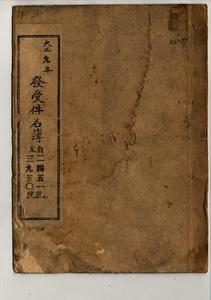 大正九年
發受件名簿
自二四五一號
至三九五〇號